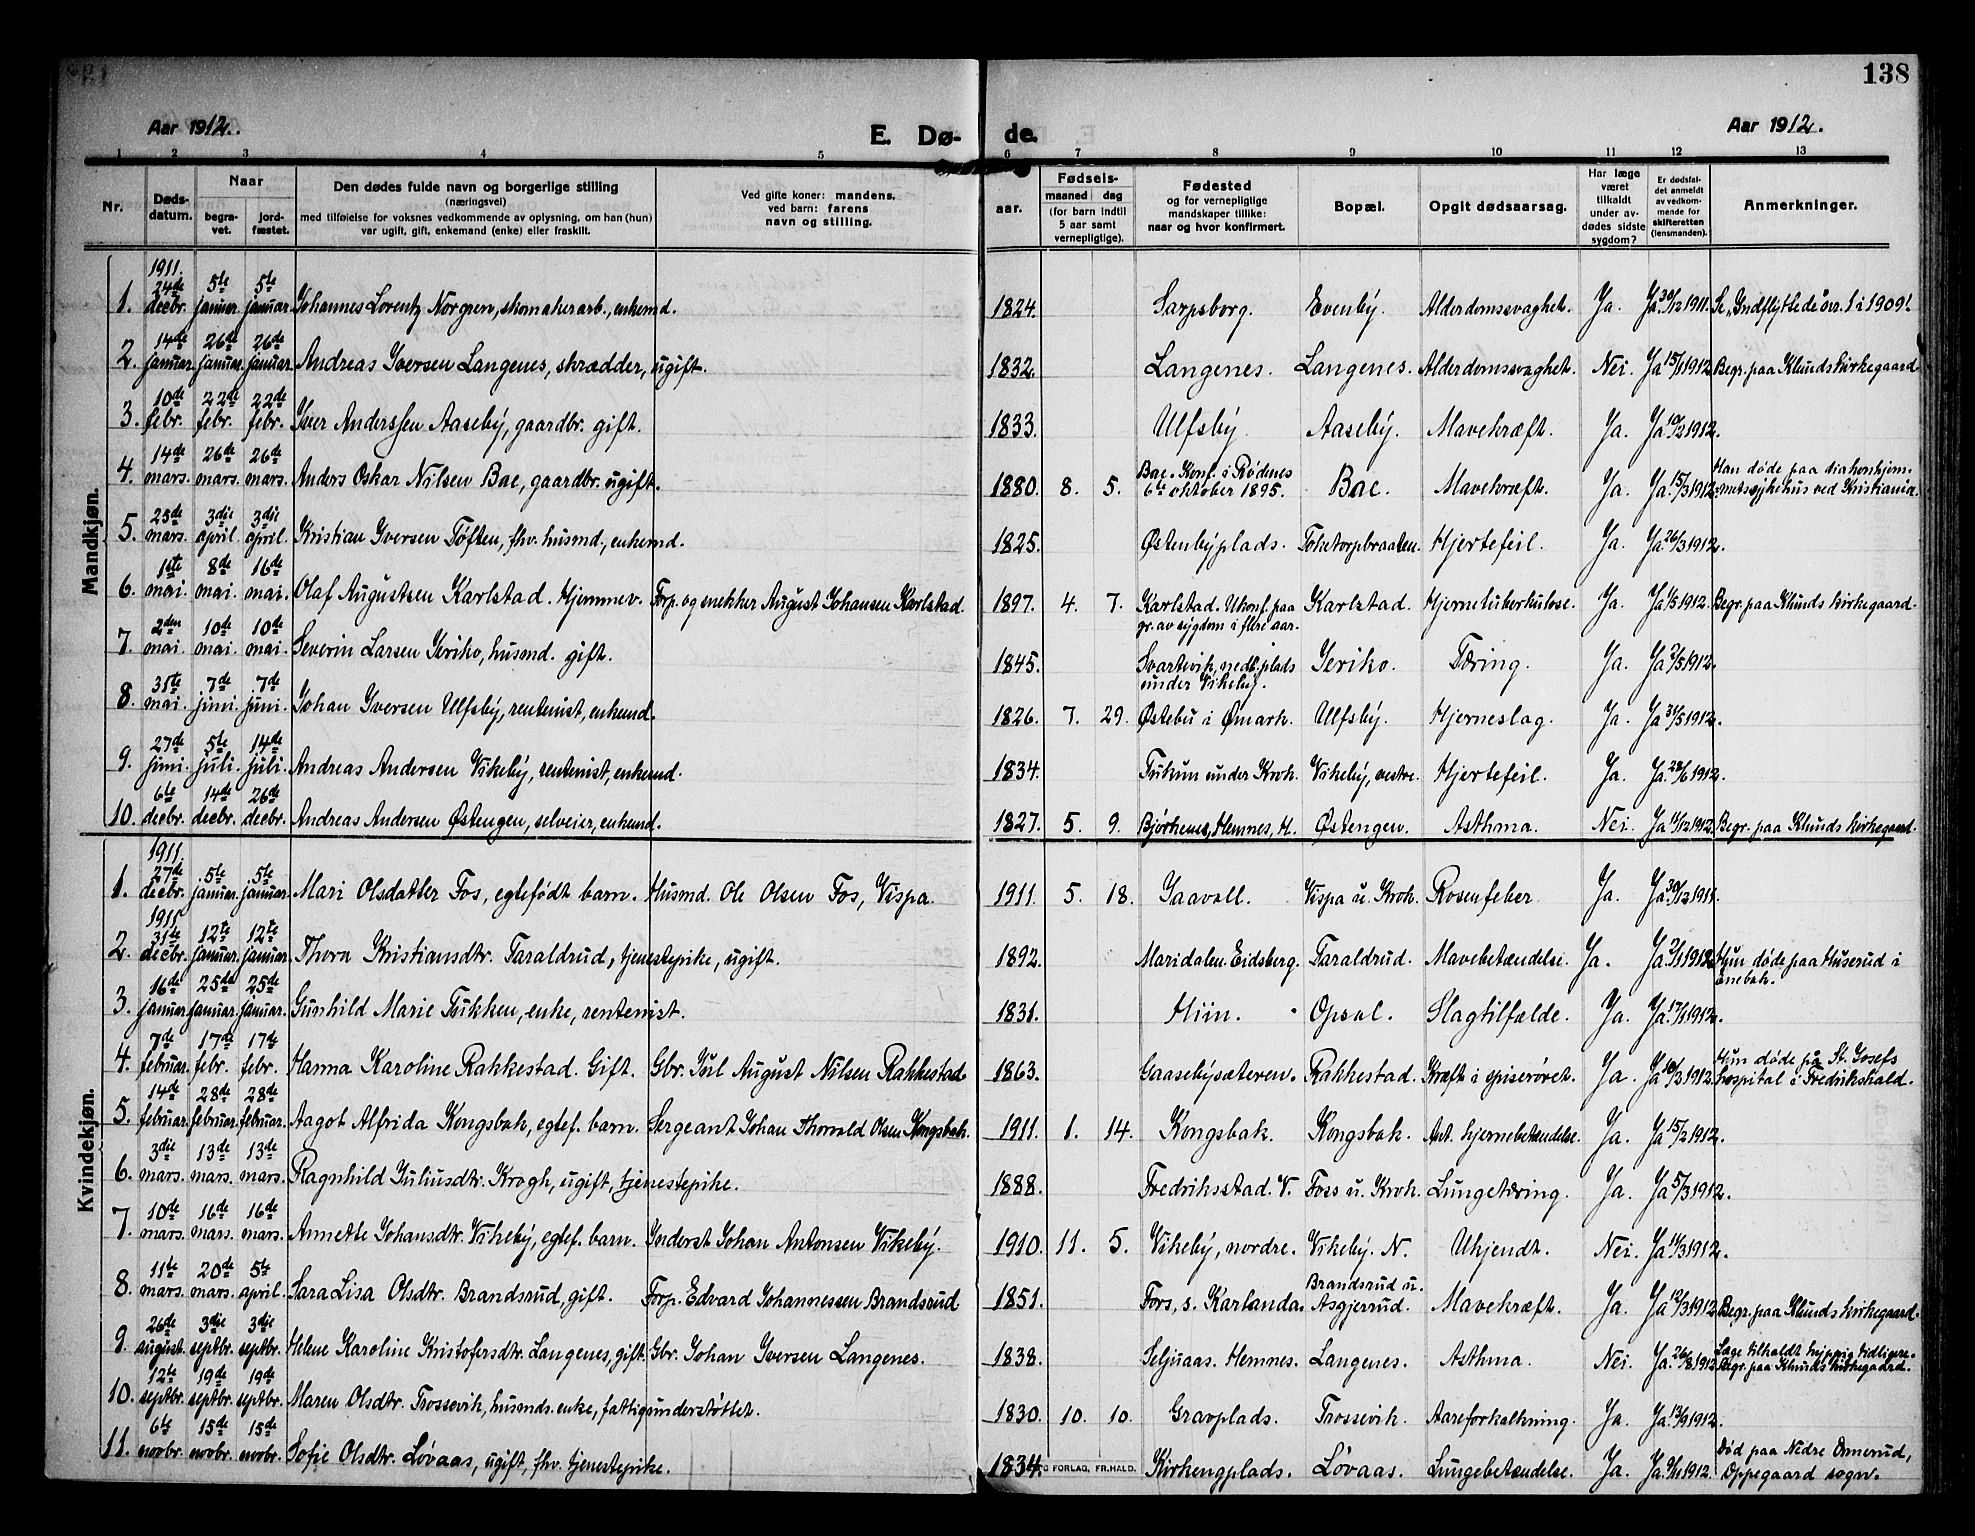 138
Aar 1912.
E. Dø-
de.
Aar 1912.
1 2 3 4 5 6 7 8 9 10 11 12 13
Nr.
Døds-
datum.
Naar
begra-
vet.
jord-
fæstet.
Den dødes fulde navn og borgerlige stilling
(næringsvei)
med tilføielse for voksnes vedkommende av oplysning, om han (hun)
var ugift, gift, enkemand (enke) eller fraskilt.
Ved gifte koner: mandens,
ved barn: farens
navn og stilling.
Fødsels-
aar.
maaned dag
(for barn indtil
5 aar samt
vernepligtige).
Fødested
og for vernepligtige
mandskaper tillike:
naar og hvor konfirmert.
Bopæl.
Opgit dødsaarsag.
Har læge
været
tilkaldt
under av-
dødes sidste
sygdom?
Er dødsfal-
det anmeldt
av vedkom-
mende for
skifteretten
(lensmanden).
Anmerkninger.
Mandkjøn.
1911.
1. 24de decbr. 5te januar. 5te januar. Johannes Lorentz Norgren, skomakerarb., enkemd. 1824. Sarpsborg. Evenby. Alderdomssvaghet. Ja. Ja 30/12 1911. Se "Indflyttede" nr. 1 i 1909!
2. 14de januar. 26de januar. 26de januar. Andreas Iversen Langenes, skrædder, ugift. 1832. Langenes. Langenes. Alderdomssvaghet. Nei. Ja 15/1 1912. Begr. paa Klunds kirkegaard.
3. 10de febr. 22de febr. 22de febr. Iver Anderssen Aaseby, gaardbr. gift. 1833. Ulfsby. Aaseby. Mavekræft. Ja. Ja 10/2 1912.
4. 14de mars. 26de mars. 26de mars. Anders Oskar Nilsen Bae, gaardbr. ugift. 1880. 8. 5. Bae. Konf. i Rødenes
6te oktober 1895. Bae. Mavekræft. Ja. Ja. 15/3 1912. Han døde paa diakonhjem-
metssykehus ved Kristiania.
5. 25de mars. 3die april. 3die april. Kristian Iversen Tøften, fhv. husmd, enkemd. 1825. Østenbyplads. Toketorpbraaten. Hjertefeil. Ja. Ja 26/3 1912.
6. 1ste mai. 8de mai. 16de mai. Olaf Augustsen Karlstad. Hjemmev. Forp. og snekker August Johansen Karlstad 1897. 4. 7. Karlstad. Ukonf. paa
gr. av sygdom i flere aar. Karlstad. Hjernetuberkulose. Ja. Ja 1/5 1912. Begr. paa Klunds kirkegaard.
7. 2den mai. 10de mai. 10de mai. Severin Larsen Jeriko, husmd. gift. 1845. Svartevik, nedl. plads
under Vikeby. Jeriko. Tæring. Ja. Ja 2/5 1912.
8. 31te mai. 7de juni. 7de juni. Johan Iversen Ulfsby, rentenist, enkemd. 1826. 7. 29. Østebu i Ømark. Ulfsby. Hjerneslag. Ja. Ja 31/5 1912.
9. 27de juni. 5te juli. 14de juli. Andreas Andersen Vikeby, rentenist, enkemd. 1834. Tukun under Krok. Vikeby, vestre. Hjertefeil. Ja. Ja. 28/6 1912.
10. 6te decbr. 14de decbr. 26de decbr. Andreas Andersen Østengen, selveier, enkemd. 1827. 5. 9. Bjørkenes, Hemnes, H. Østengen. Asthma. Nei. Ja 11/12 1912. Begr. paa Klunds kirkegaard.
Kvindekjøn.
1911.
1. 27de decbr. 5te januar. 5te januar. Mari Olsdatter Fos, egtefødt barn. Husmd. Ole Olsen Fos, Vispa. 1911. 5. 18. Gaavoll. Vispa u. Krok. Rosenfeber. Ja. Ja. 30/12 1911.
1911.
2. 31te decbr. 12te januar. 12te januar. Thora Kristiansdtr. Taraldrud, tjenestepike, ugift. 1892. Maridalen. Eidsberg. Taraldrud. Mavebetændelse. Ja. Ja 2/1 1912. Hun døde paa Huserud i
Enebak.
3. 16de januar. 25de januar. 25de januar. Gunhild Marie Tukken, enke, rentenist. 1831. Hiim. Opsal. Slagtilfælde. Ja. Ja. 17/1 1912.
4. 7de februar. 17de febr. 17de febr. Hanna Karoline Rakkestad. Gift. Gbr. Jul August Nilsen Rakkestad. 1863. Gaasebysæteren. Rakkestad. Kræft i spiserøret. Ja. Ja 10/2 1912. Hun døde på St. Josefs
hospital i Fredrikshald.
5. 14de februar. 28de februar. 28de februar. Aagot Alfrida Kongsbak, egtef. barn. Sergeant Johan Thorvald Olsen Kongsbak. 1911. 1. 14. Kongsbak. Kongsbak. Ant. hjernebetændelse. Ja. Ja 15/2 1912.
6. 3die mars. 13de mars. 13de mars. Ragnhild Juliusdtr. Krogh, ugift, tjenestepike. 1888. Fredriksstad. V. Foss u. Krok. Lungetæring. Ja. Ja 5/3 1912.
7. 10de mars. 16de mars. 16de mars. Annette Johansdtr. Vikeby, egtef. barn. Inderst Johan Antonsen Vikeby. 1910. 11. 5. Vikeby, nordre. Vikeby. N. Ukjendt. Nei. Ja 11/3 1912.
8. 11te mars. 20de mars. 5te april. Sara Lisa Olsdtr. Brandsrud, gift. Forp. Edvard Johannessen Brandsrud 1851. Fors, s. Karlanda. Brandsrud u.
Asgjerrud. Mavekræft. Ja. Ja 12/3 1912. Begr. paa Klunds kirkegaard.
9. 26de august. 3die septbr. 3die septbr. Helene Karoline Kristofersdtr. Langenes, gift. Gbr. Johan Iversen Langenes. 1838. Seljuaas. Hemnes. Langenes. Asthma. Nei. Ja. 26/8 1912. Læge tilkaldt hyppig tidligere.
Begr. paa Klunds kirkegaard.
10. 12te septbr. 19de septbr. 19de septbr. Maren Olsdtr. Trossevik, husmds. enke, fattigunderstøttet. 1830. 10. 10. Gravplads. Trossevik. Aareforkalkning. Ja. Ja. 13/9 1912.
11. 6te novbr. 15de novbr. 15de novbr. Sofie Olsdtr. Løvaas, ugift, fhv. tjenestepike. 1834. Kirkengplads. Løvaas. Lungebetændelse. Ja. Ja. 9/11 1912. Død paa Nedre Ormerud,
Oppegaard sogn.
FORLAG, FR.HALD.